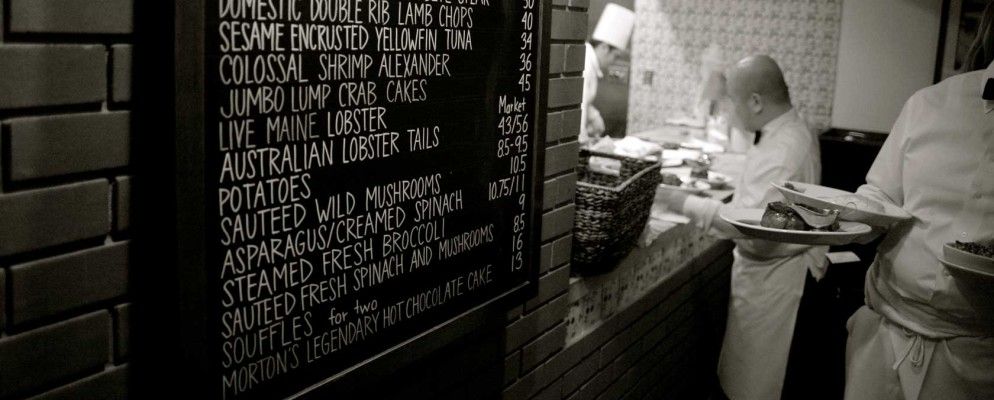 50
DOMESTIC DOUBLE RIB LAMB CHOPS 40
SESAME ENCRUSTED YELLOWFIN TUNA 34
COLOSSAL SHRIMP ALEXANDER 36
JUMBO LUMP CRAB CAKES 45
LIVE MAINE LOBSTER Market
AUSTRALIAN LOBSTER TAILS 43/56
POTATOES 8.5-9.5
SAUTEED WILD MUSHROOMS 10.5
ASPARAGUS/CREAMED SPINACH 10.75/11
STEAMED FRESH BROCCOLI 9
SAUTEED FRESH SPINACH AND MUSHROOMS 8.5
SOUFFLES for two 16
MORTON'S LEGENDARY HOT CHOCOLATE CAKE 13